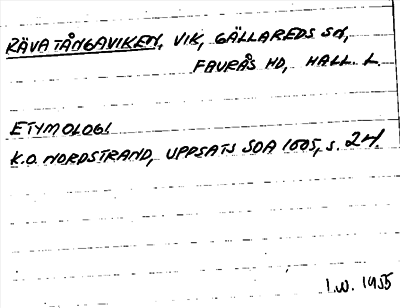 RÄVATÅNGAVIKEN, VIK, GÄLLAREDS SN,
FAURÅS HD, HALL. L.
ETYMOLOGI.
K.O. NORDSTRAND, UPPSATS SOA 1005, S. 24.
I.W. 1955